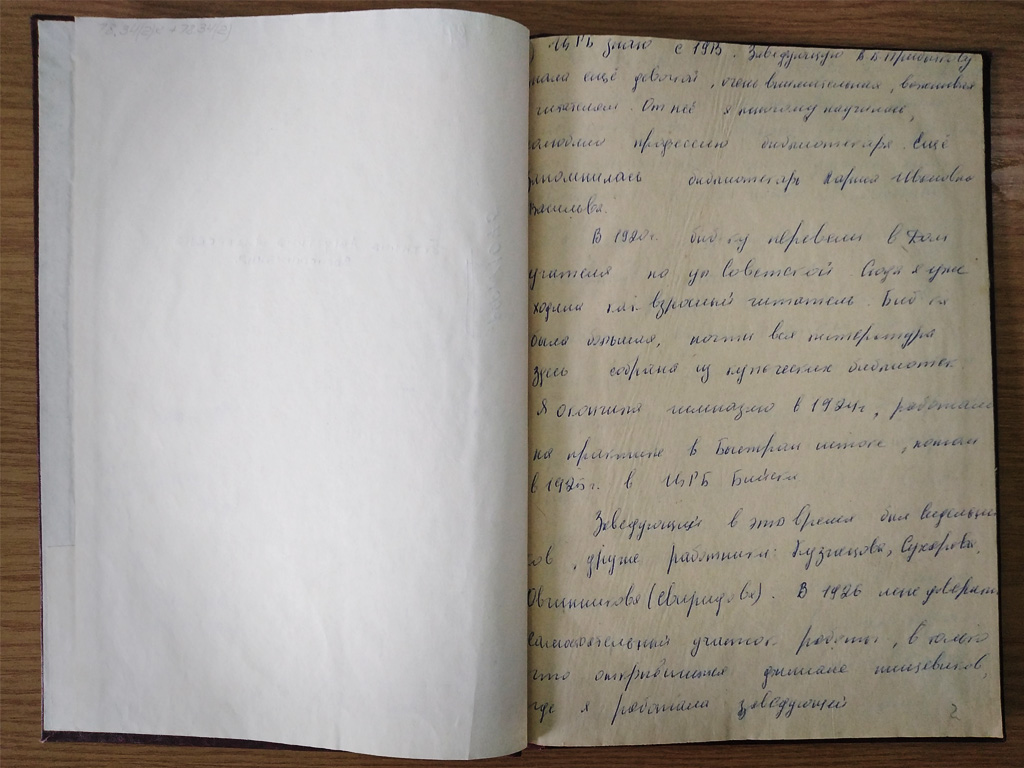 ЦРБ знаю с 1913. Заведующую В.В.
знала ещё девочкой, очень внимательная, вежливая
читателям. От неё я многому научилась,
полюбила профессию библиотекаря. Ещё
запомнилась библиотекарь Мария Ивановна
Васильева.
В 1920г. биб-ку перевели в Дом
учителя на ул Советской. Сюда я уже
ходила как взрослый читатель. Биб-ка
была большая, почти вся литература
здесь собрана из купеческих библиотек
Я окончила гимназию в 1924г, работала
на практике в Быстром истоке, потом
в 1925г. в ЦРБ Бийска
Заведующий в это время был
ов, другие работники: Кузнецова, Сухорева,
Овчинникова (Свиридова). В 1926 мне доверили
самостоятельный участок работы, в только
что открывшемся филиале пищевиков,
где я работала заведующей
2